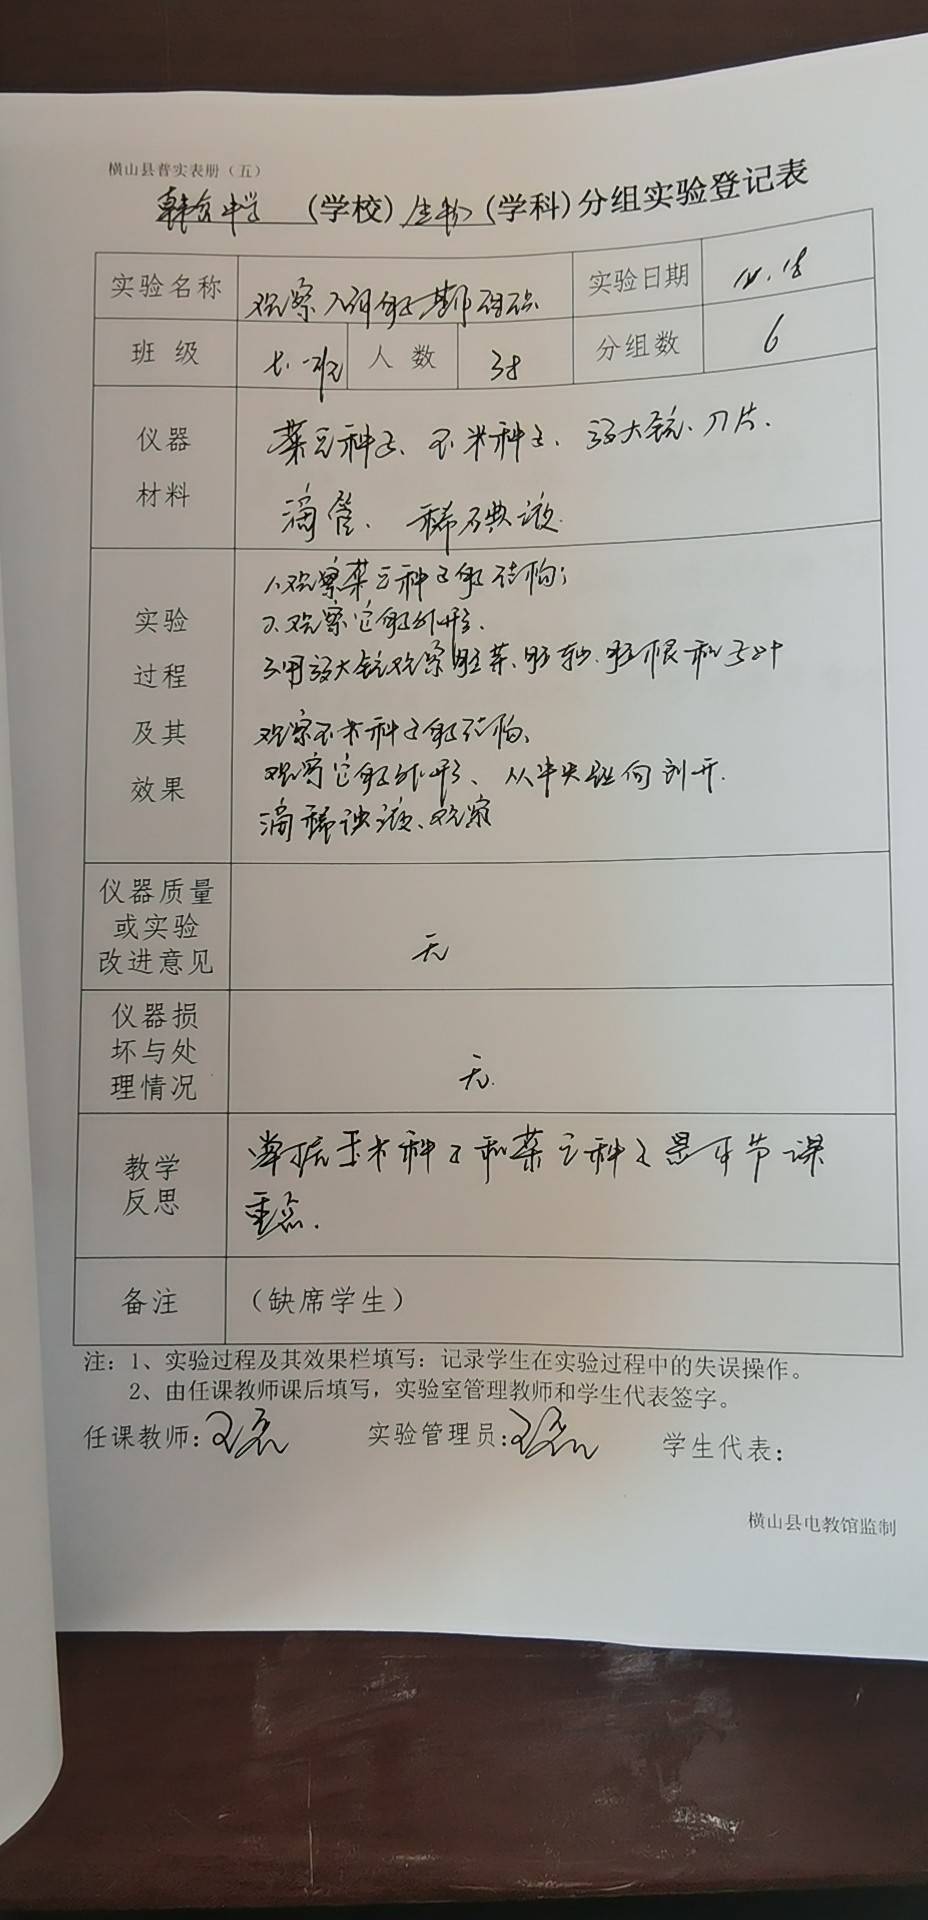 横山县普实表册（五）
中学（学校）生物（学科）分组实验登记表
实验名称 观察 实验日期
班 级 七.一班 人 数 38 分组数 6
仪器
材料
菜豆种子、玉米种子、放大镜、刀片、
滴管、稀碘液.
实验
过程
及其
效果
1.观察菜豆种子的结构；
2.观察它的外形.
3.用放大镜观察胚芽、胚轴、胚根和子叶
观察玉米种子的结构、
观察它的外形、从中央纵向剖开.
滴稀碘液、观察
仪器质量
或实验
改进意见
无
仪器损
坏与处
理情况
无.
教学
反思
掌握玉米种子和菜豆种子是本节课
重点.
备注 （缺席学生）
注：1、实验过程及其效果栏填写：记录学生在实验过程中的失误操作。
2、由任课教师课后填写，实验室管理教师和学生代表签字。
任课教师： 实验管理员： 学生代表：
横山县电教馆监制